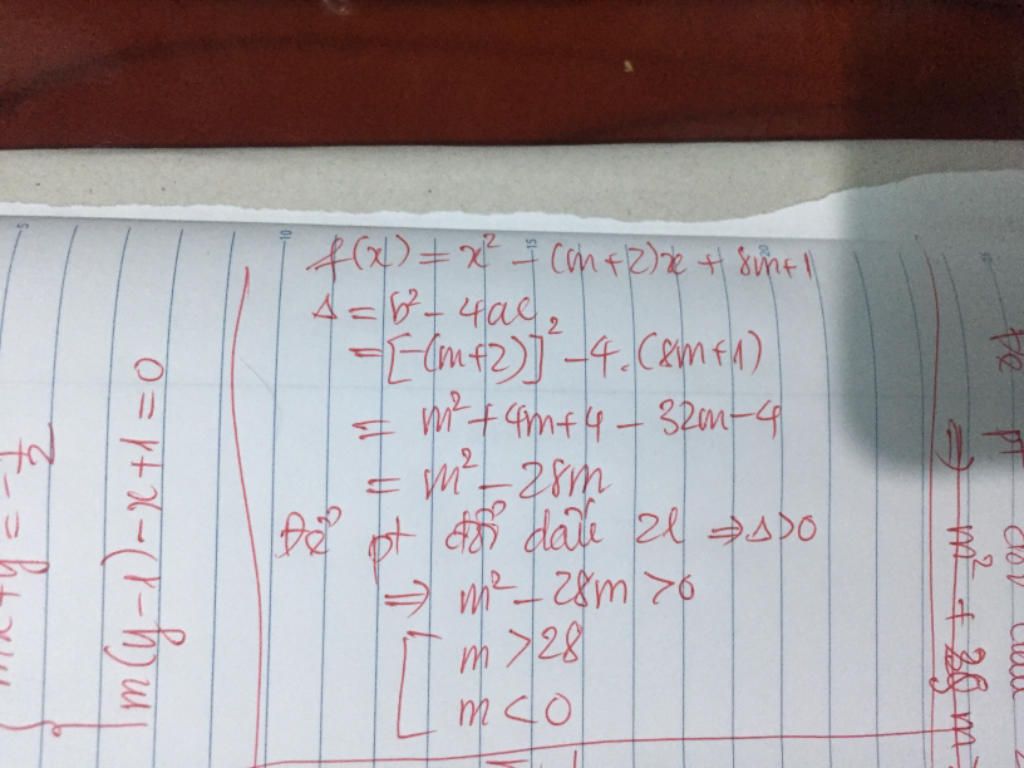 f(x) = x² - (m+2)x + 8m+1
Δ = b² - 4ac
= [-(m+2)]² - 4.(8m+1)
= m² + 4m + 4 - 32m - 4
= m² - 28m
Để pt đổi dấu 2l ⇒ Δ>0
⇒ m² - 28m > 0
[ m > 28
m < 0
mx + y = -1/2
m(y-1) - x + 1 = 0
pt đổi dấu
⇒ m² + 28 m